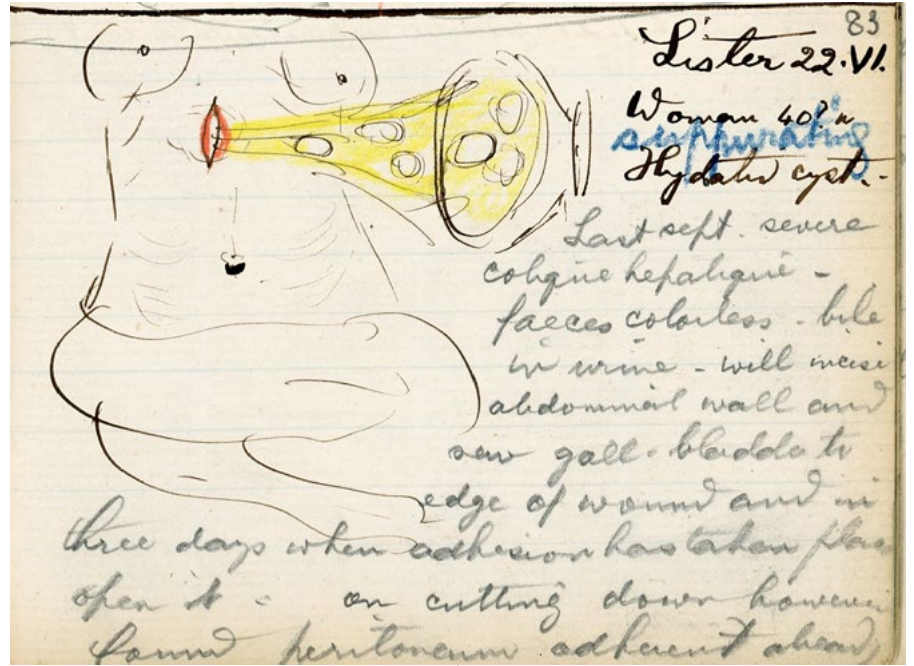 83
Lister 22.VI.
Woman 40?
suppurating
Hydatid cyst.-
Last sept. severe
colique hepatique -
faeces colorless - bile
in urine - will incise
abdominal wall and
sew gall-bladder to
edge of wound and in
three days when adhesion has taken place
open it - on cutting down however
found peritoneum adherent